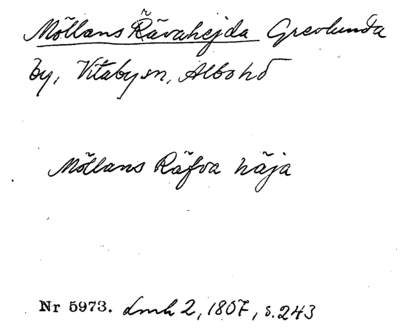 Möllans Rävahejda Grevlunda
by, Vitaby sn, Albo hd
Möllans Räfva häja
Nr 5973. Lmk 2, 1807, s. 243